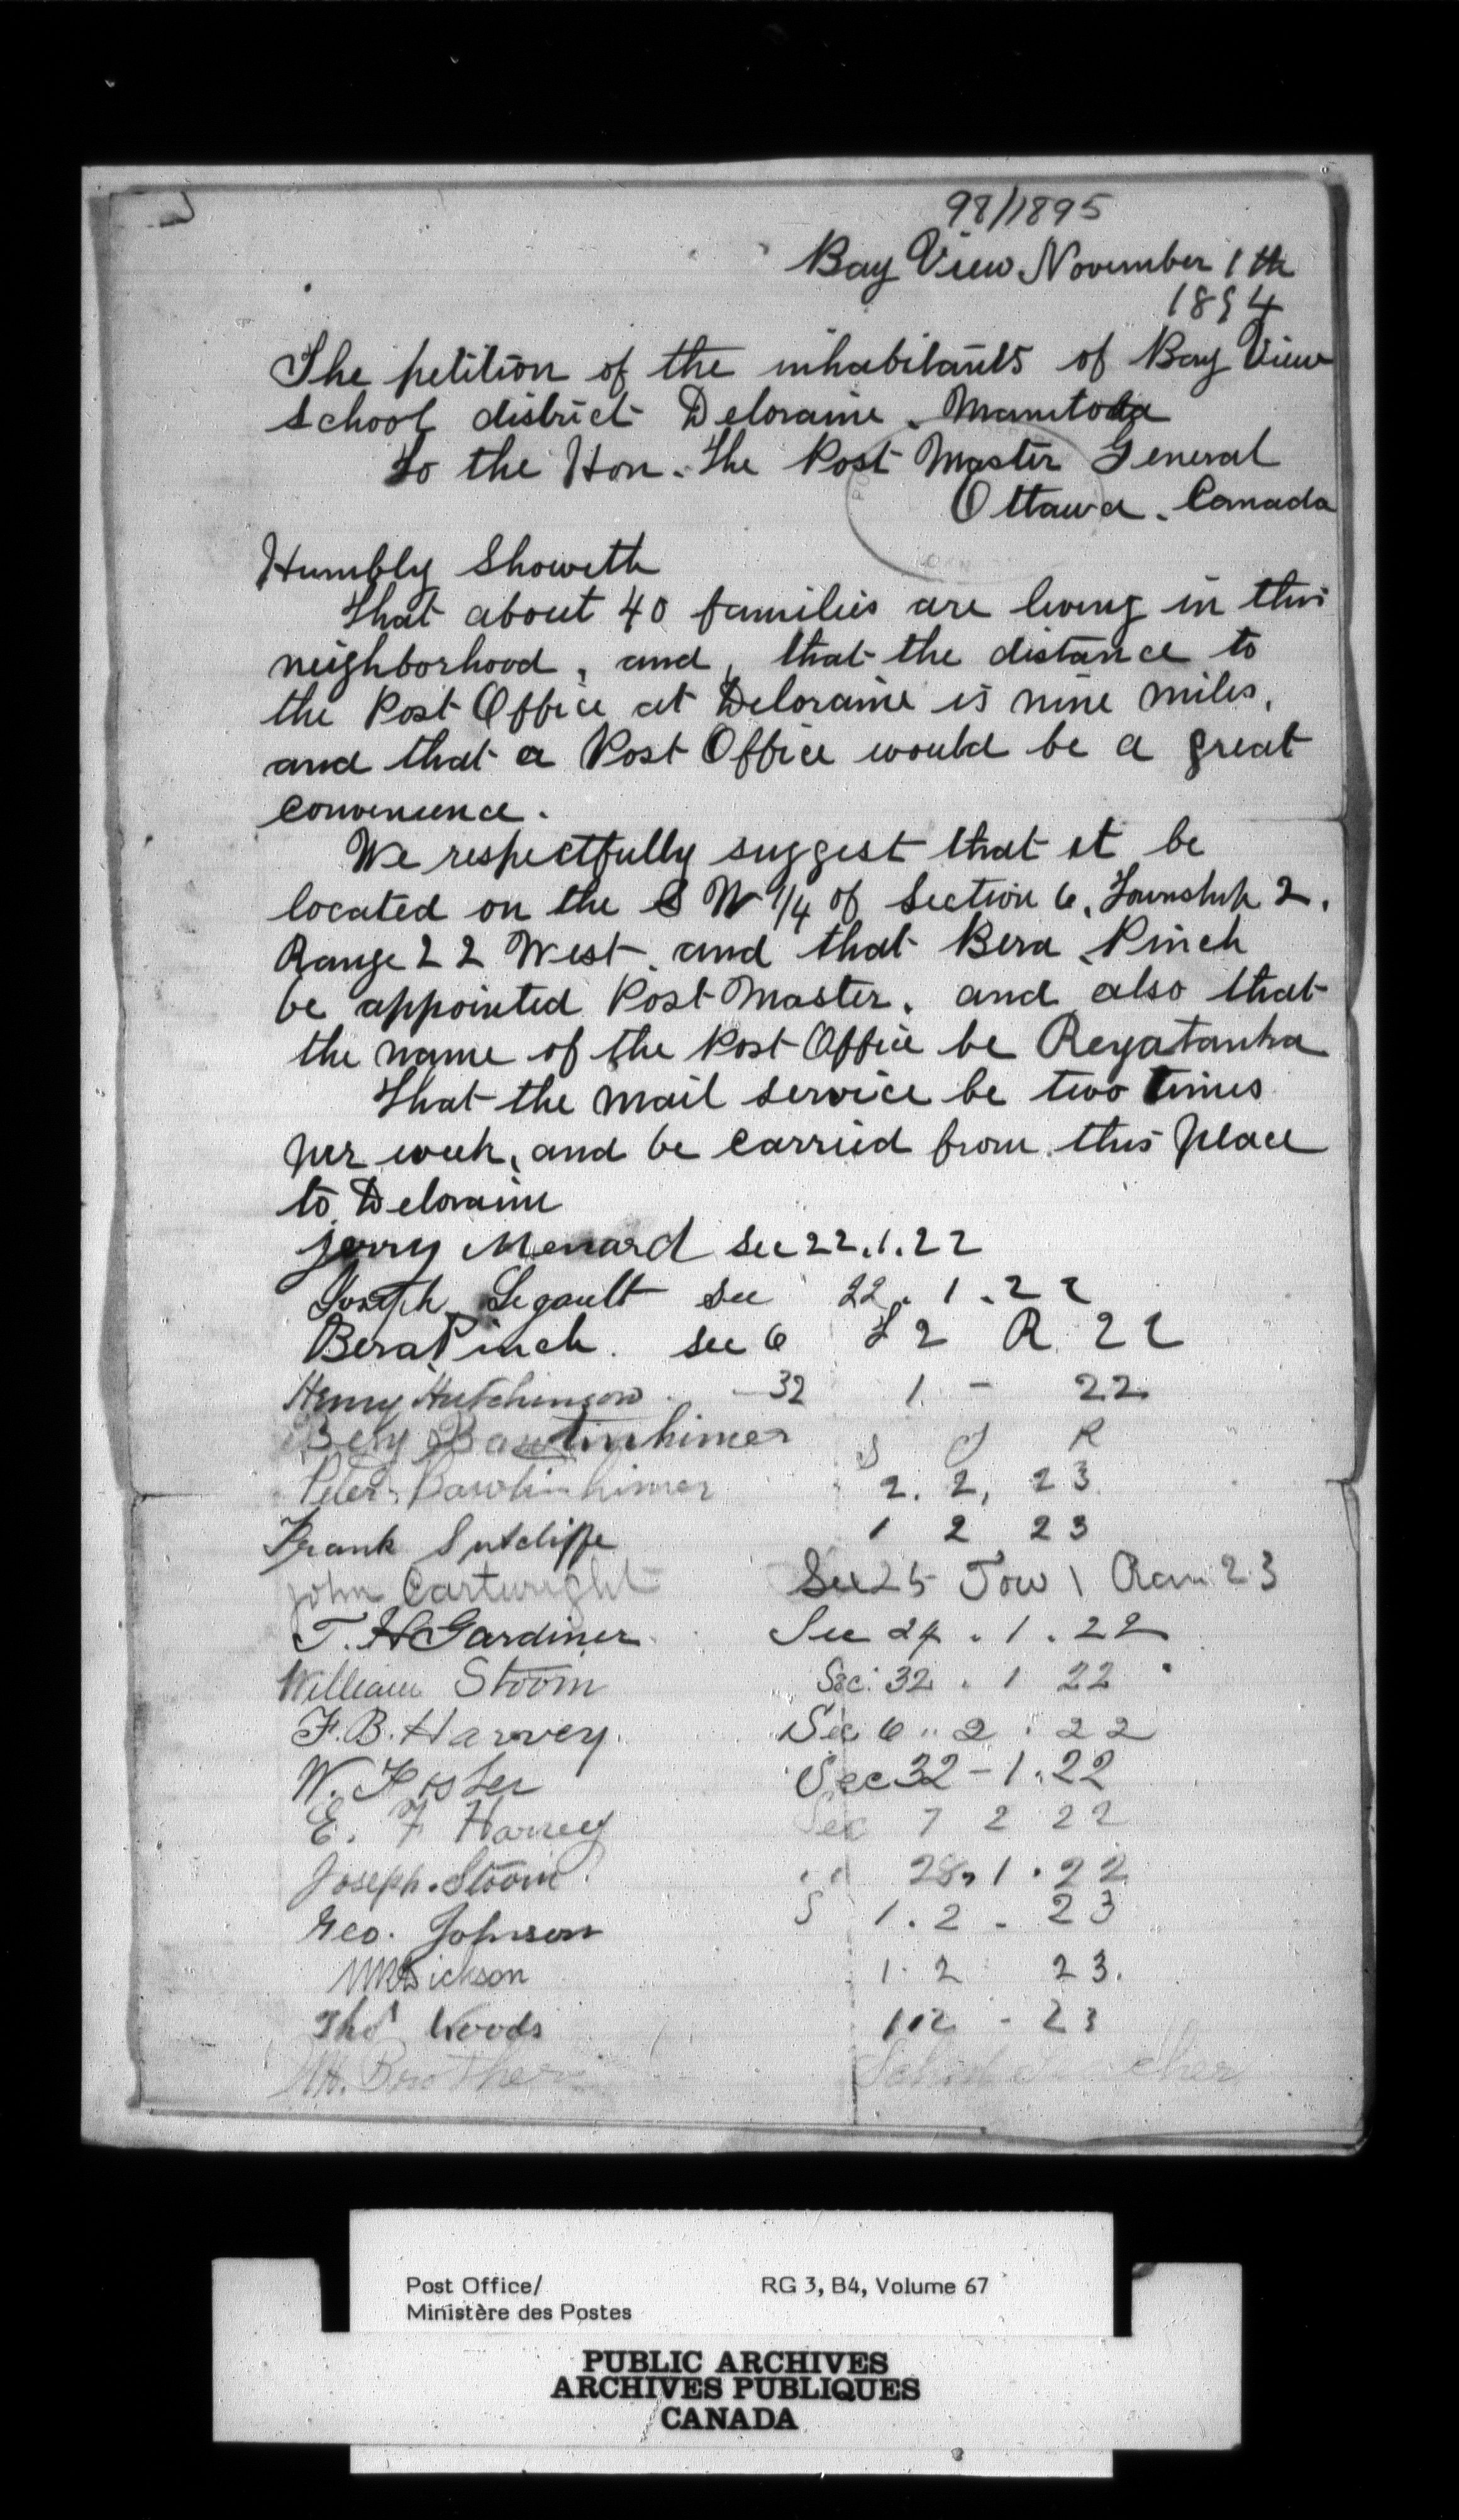 98/1895
Bay View November 1th
1894
The petition of the inhabitants of Bay View
School district Deloraine. Manitoba
To the Hon. The Post Master General
Ottawa. Canada
Humbly Showeth
That about 40 families are living in this
neighborhood, and, that the distance to
the Post Office at Deloraine is nine miles,
and that a Post Office would be a great
convenience.
We respectfully suggest that it be
located on the S W 1/4 of Section 6, Township 2,
Range 22 West. and that Bera Pinch
be appointed Post Master, and also that
the name of the Post Office be Regatanka
That the mail service be two times
per week, and be carried from this place
to Deloraine
Jerry Menard Sec 22.1.22
Joseph Legault Sec 22.1.22
Bera Pinch. Sec 6 T 2 R 22
Henry Hutchinson 32 1 - 22
Benj Bawtinhimer S T R
Peter Bawtinhimer 2. 2, 23
Frank Sutcliffe 1 2 23
John Cartwright Sec 25 Tow 1 Ran 23
T. H Gardiner Sec 24.1.22
William Stoom Sec. 32.1 22
F. B. Harvey. Sec 6 .. 2 . 22
W. Foster Sec 32 - 1.22
E. F Harvey Sec 7 2 22
Joseph. Stoom " 28, 1.22
Geo. Johnson S 1.2 - 23
Dickson 1. 2 23.
Thos Woods 1 2 - 23
School Teacher
Post Office/
Ministère des Postes
RG 3, B4, Volume 67
PUBLIC ARCHIVES
ARCHIVES PUBLIQUES
CANADA